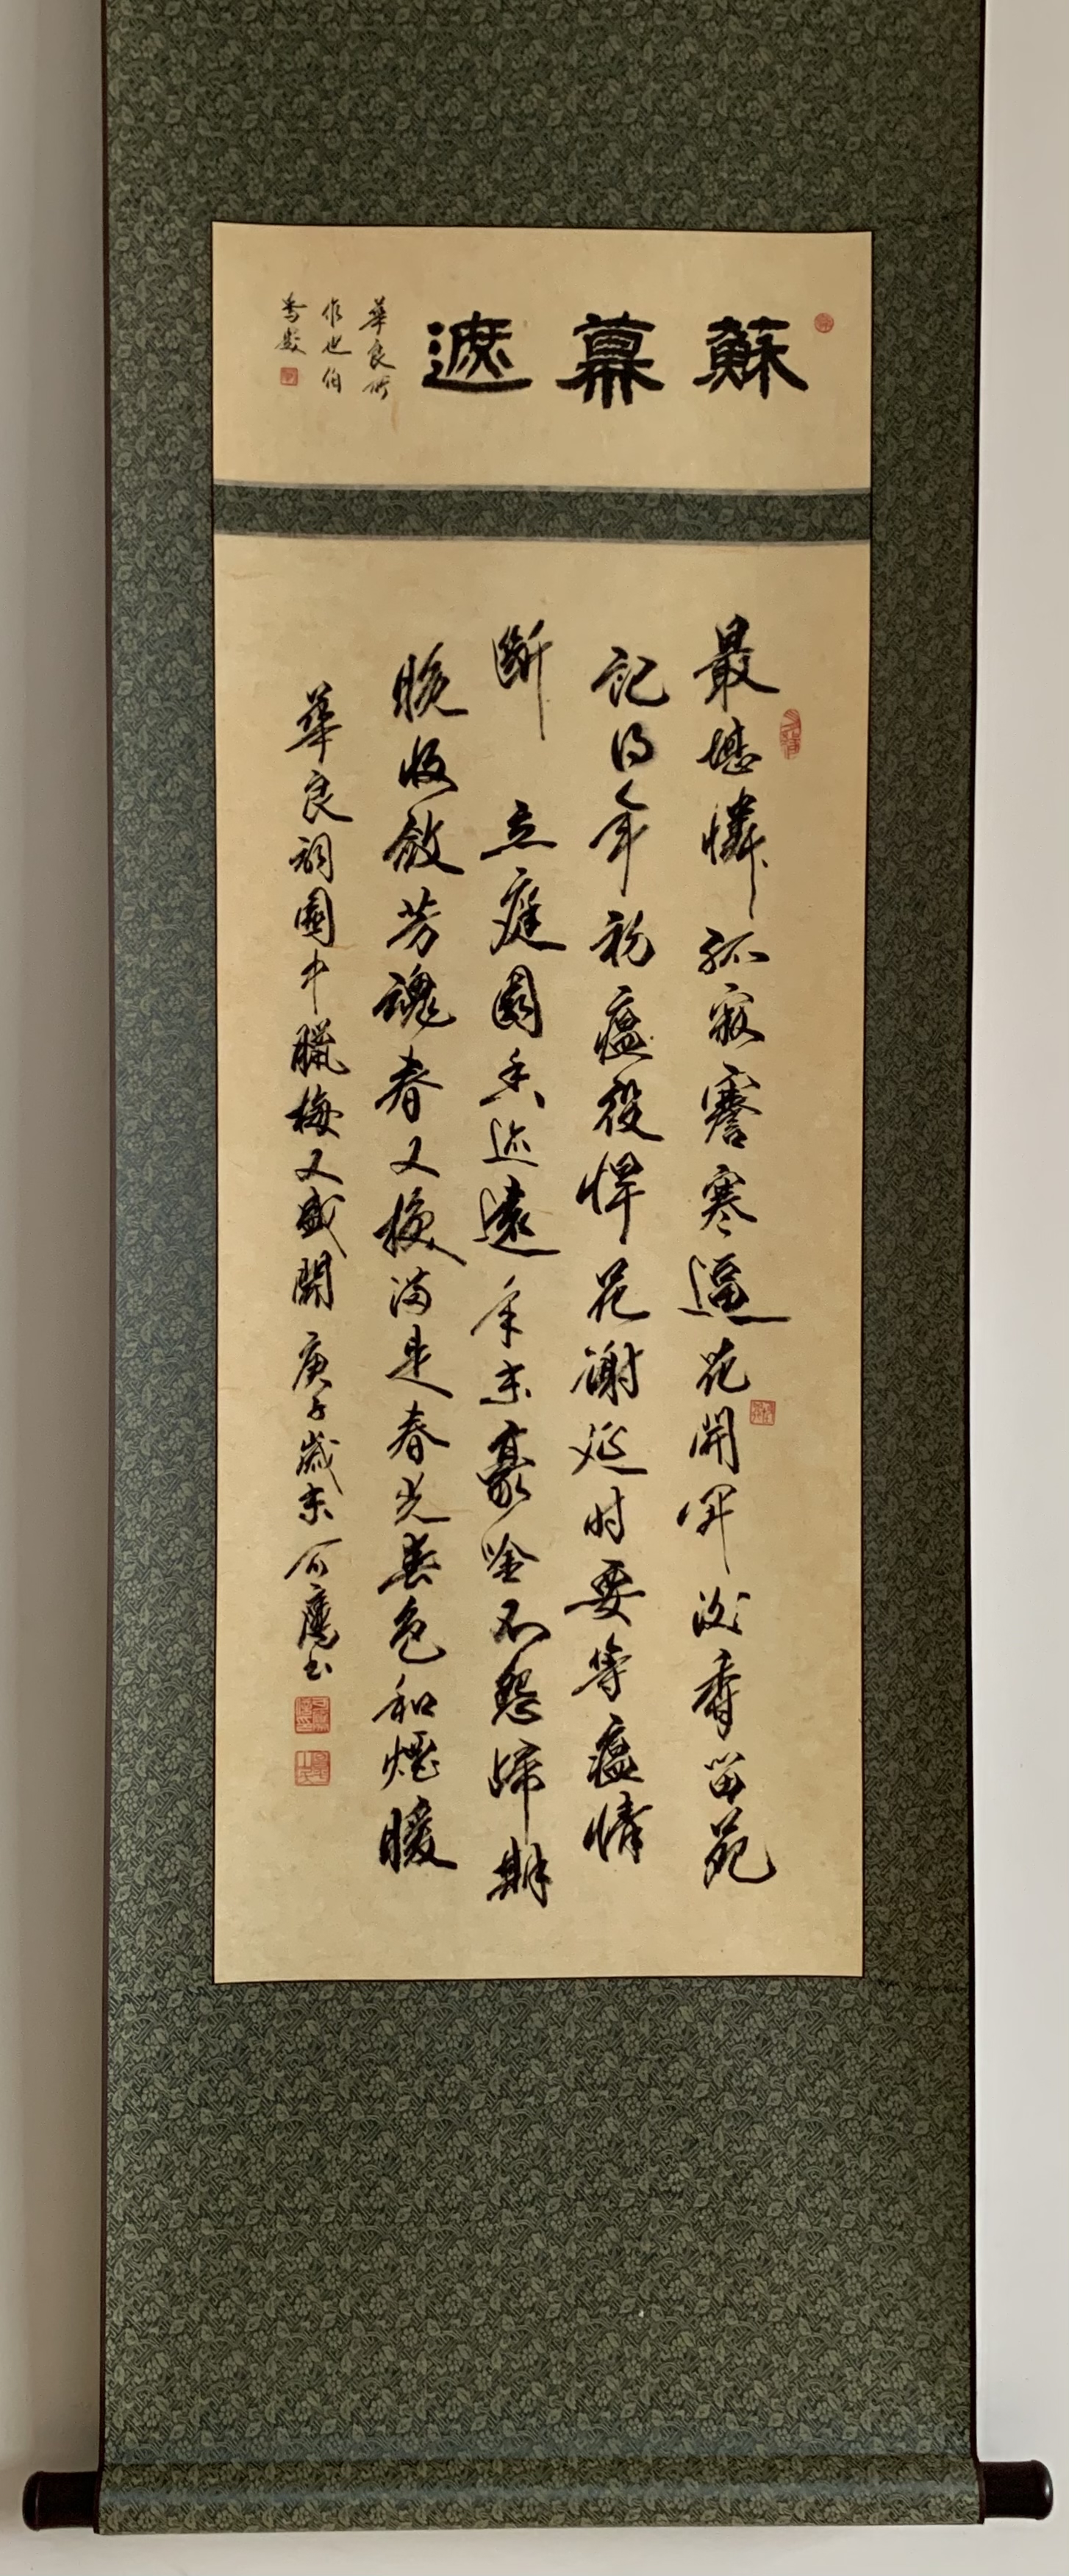 蘇幕遮
華良所
作也
最憐孤寂寒逼花開香留苑
記得年初瘟疫悍花謝延時要等瘟情
斷 立庭園香迹遠年末豪吟不怨歸期
晚收斂芳魂春又換滿是春光春色和煙暖
華良詞園中臘梅又盛開庚子歲末鷹书